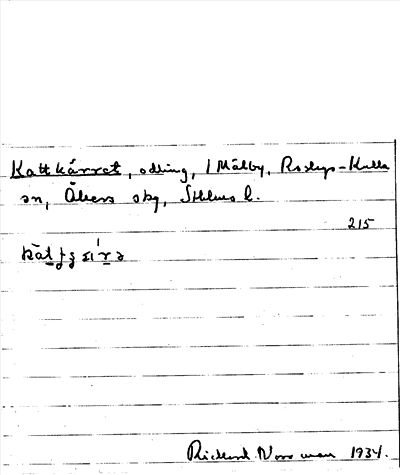 Kattkärret, odling, 1 Mälby, Roslags-Kulla
sn, Åkers skg, Sthlms l.
215
Richard Norrman 1934.